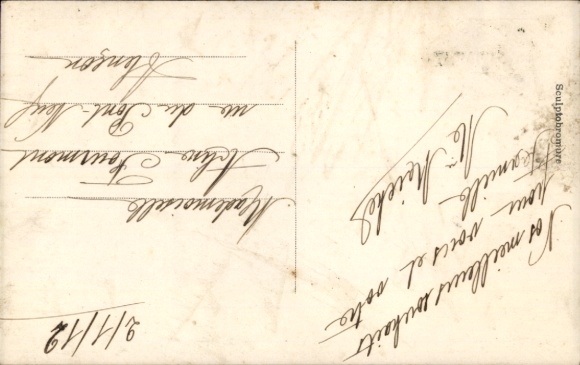 Nos meilleurs souhaits
pour vous et votre
famille
Me Michel
Mademoiselle
Fourmont
rue du Pont-Neuf
Alençon
2/1/12
Sculptobromure